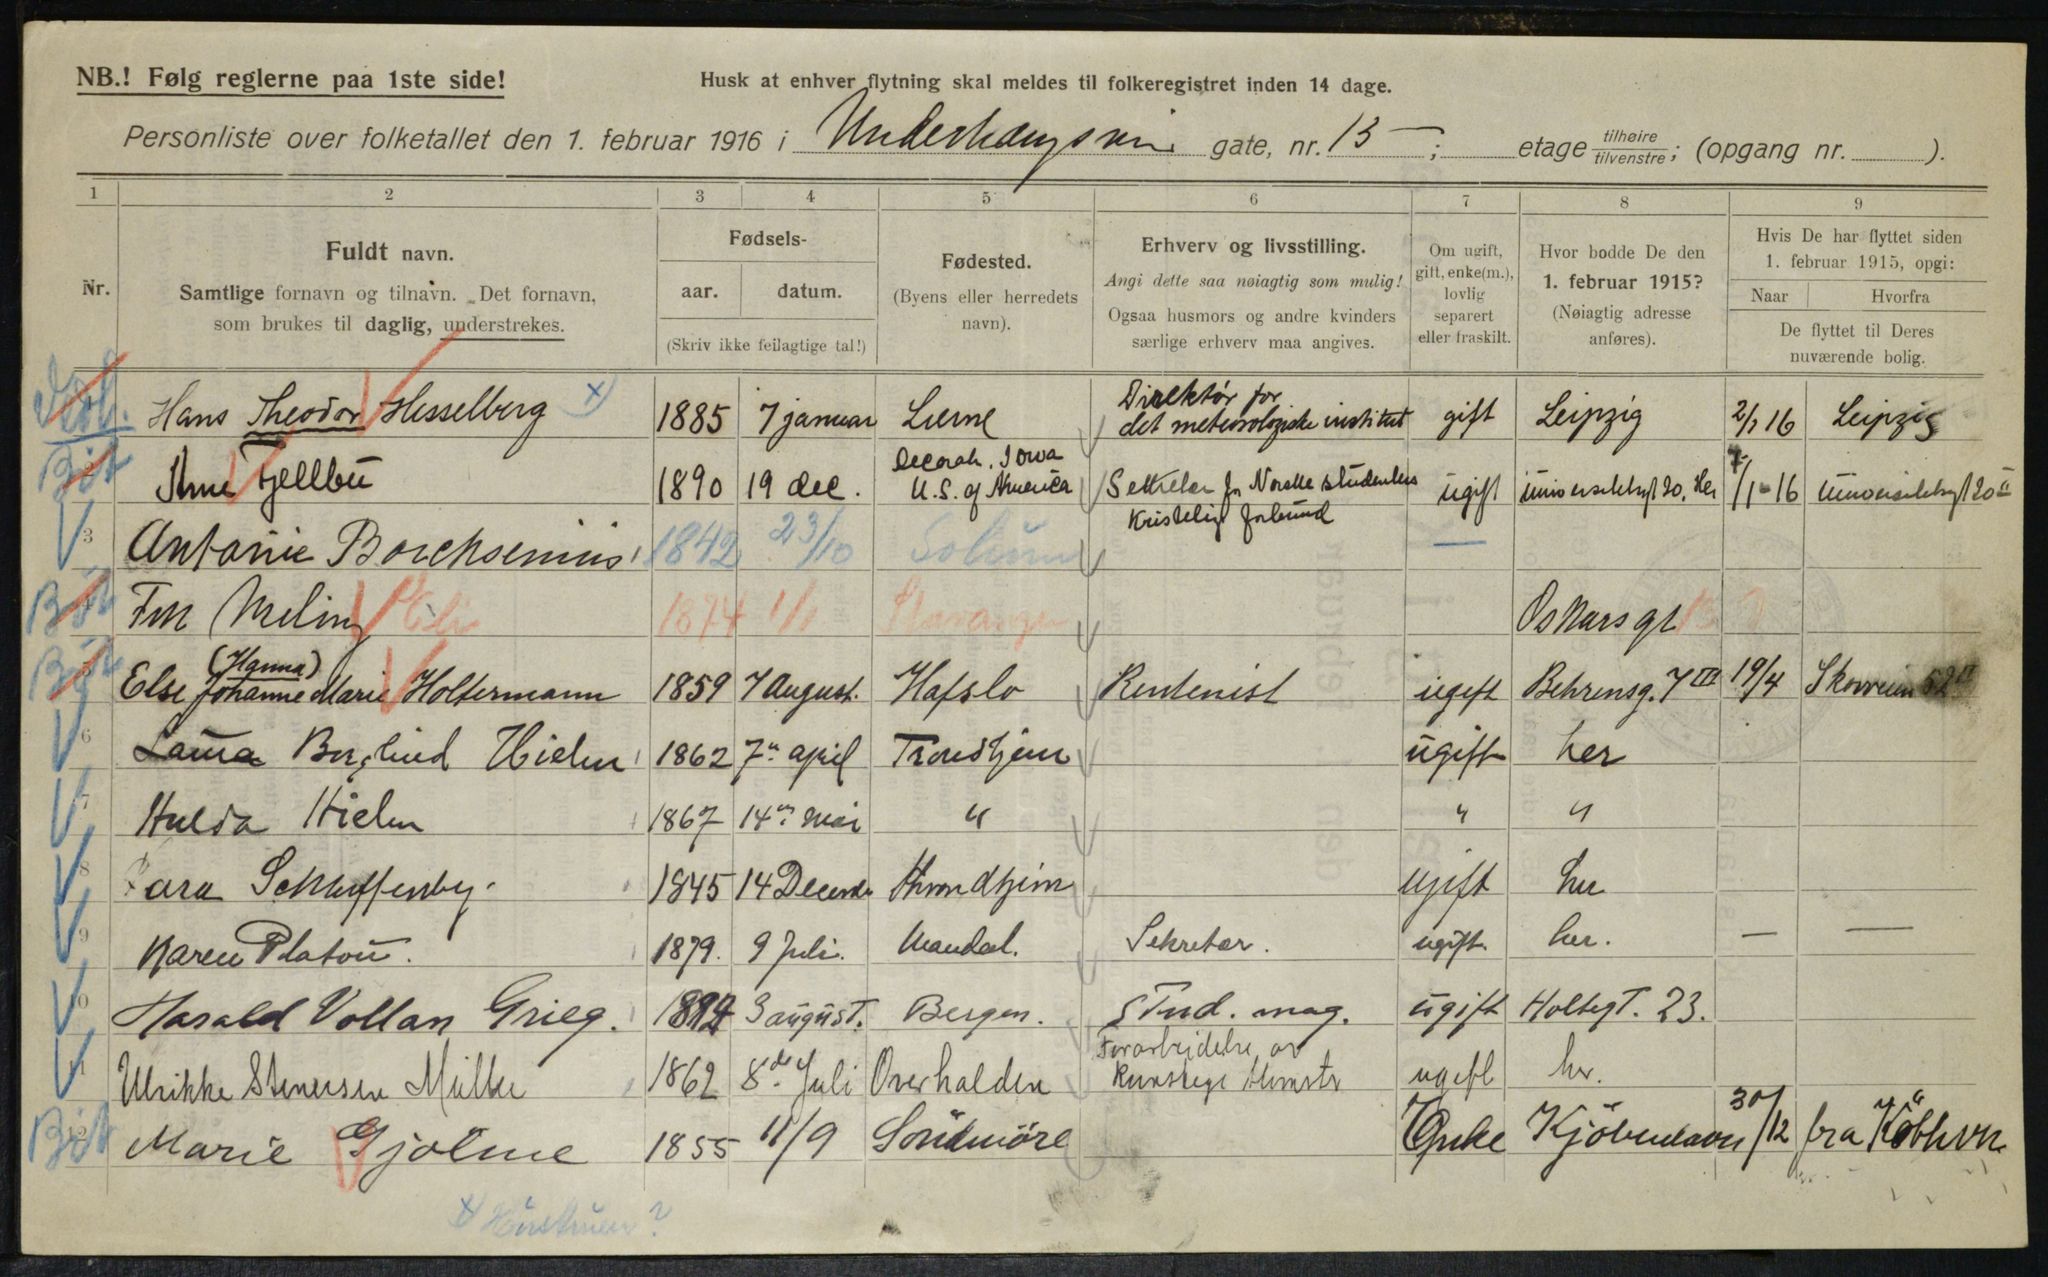 NB.! Følg reglerne paa 1ste side!
Husk at enhver flytning skal meldes til folkeregistret inden 14 dage.
Personliste over folketallet den 1. februar 1916 i Underhaugsvei gate, nr. 13 ; etage tilhøire tilvenstre ; (opgang nr. ).
1 2 3 4 5 6 7 8 9
Nr.
Fuldt navn.
Samtlige fornavn og tilnavn. Det fornavn,
som brukes til daglig, understrekes.
Fødsels-
aar. datum.
(Skriv ikke feilagtige tal!)
Fødested.
(Byens eller herredets
navn).
Erhverv og livsstilling.
Angi dette saa nøiagtig som mulig!
Ogsaa husmors og andre kvinders
særlige erhverv maa angives.
Om ugift,
gift, enke(m.),
lovlig
separert
eller fraskilt.
Hvor bodde De den
1. februar 1915?
(Nøiagtig adresse
anføres).
Hvis De har flyttet siden
1. februar 1915, opgi:
Naar Hvorfra
De flyttet til Deres
nuværende bolig.
Hans Theodor Hesselberg x) 1885 7 januar Lierne Direktør for det meteorologiske institut gift Leipzig 2/1 16 Leipzig
2 Arne Fjellbu 1890 19 dec. Decorah, Iowa U.S. of America Sekretær for Norske studenters kristelige forbund ugift universitetsgt 20. Her 7/1-16 universitetsgt 20 II
3 Antonie Borchsenius 1842 23/10 Solum
4 Frk Meling Eli 1874 1/1 Stavanger Oskarsgt
5 Else (Hanna) Johanne Marie Holtermann 1859 7 August. Hafslo Rentenist ugift Behrensg. 7 III 19/4 Skovveien 52 II
6 Laura Berglind Hielm 1862 7. april Trondhjem ugift her
7 Hulda Hielm 1867 14. mai " " "
8 Sara Scharffenberg. 1845 14 Decembr Throndhjem ugift her
9 Karen Platou. 1879. 9 Juli. Mandal. Sekretær. ugift. her. — —
10 Harald Vollan Grieg. 1894 3 august. Bergen. Stud. mag. ugift Holtegt. 23.
11 Ulrikke Stenersen Müller 1862 8de Juli Overhalden Forarbeidelse av kunstige blomster ugift her.
12 Marie Gjölme 1855 11/9 Söndmöre Enke Kjöbenhavn 30/12 fra Köbhvn
x Hustruen?